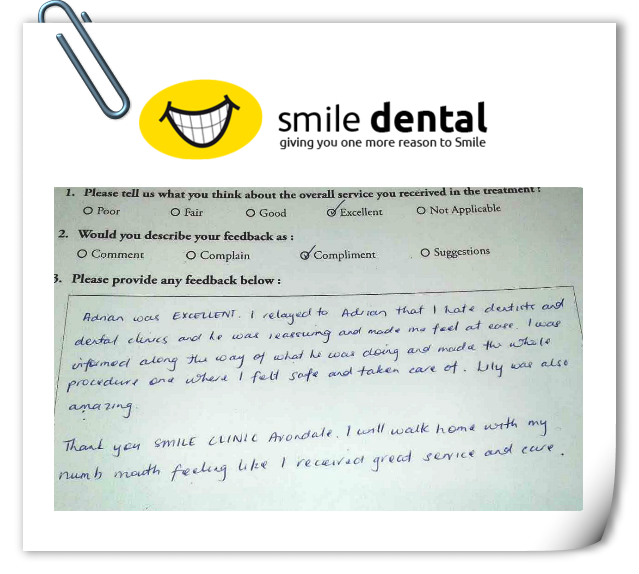 smile dental
giving you one more reason to Smile
1. Please tell us what you think about the overall service you recerived in the treatment :
Poor Fair Good Excellent Not Applicable
2. Would you describe your feedback as :
Comment Complain Compliment Suggestions
3. Please provide any feedback below :
Adrian was EXCELLENT. I relayed to Adrian that I hate dentists and
dental clinics and he was reassuring and made me feel at ease. I was
informed along the way of what he was doing and made the whole
procedure one where I felt safe and taken care of. Lily was also
amazing.
Thank you SMILE CLINIC Avondale. I will walk home with my
numb mouth feeling like I received great service and care.